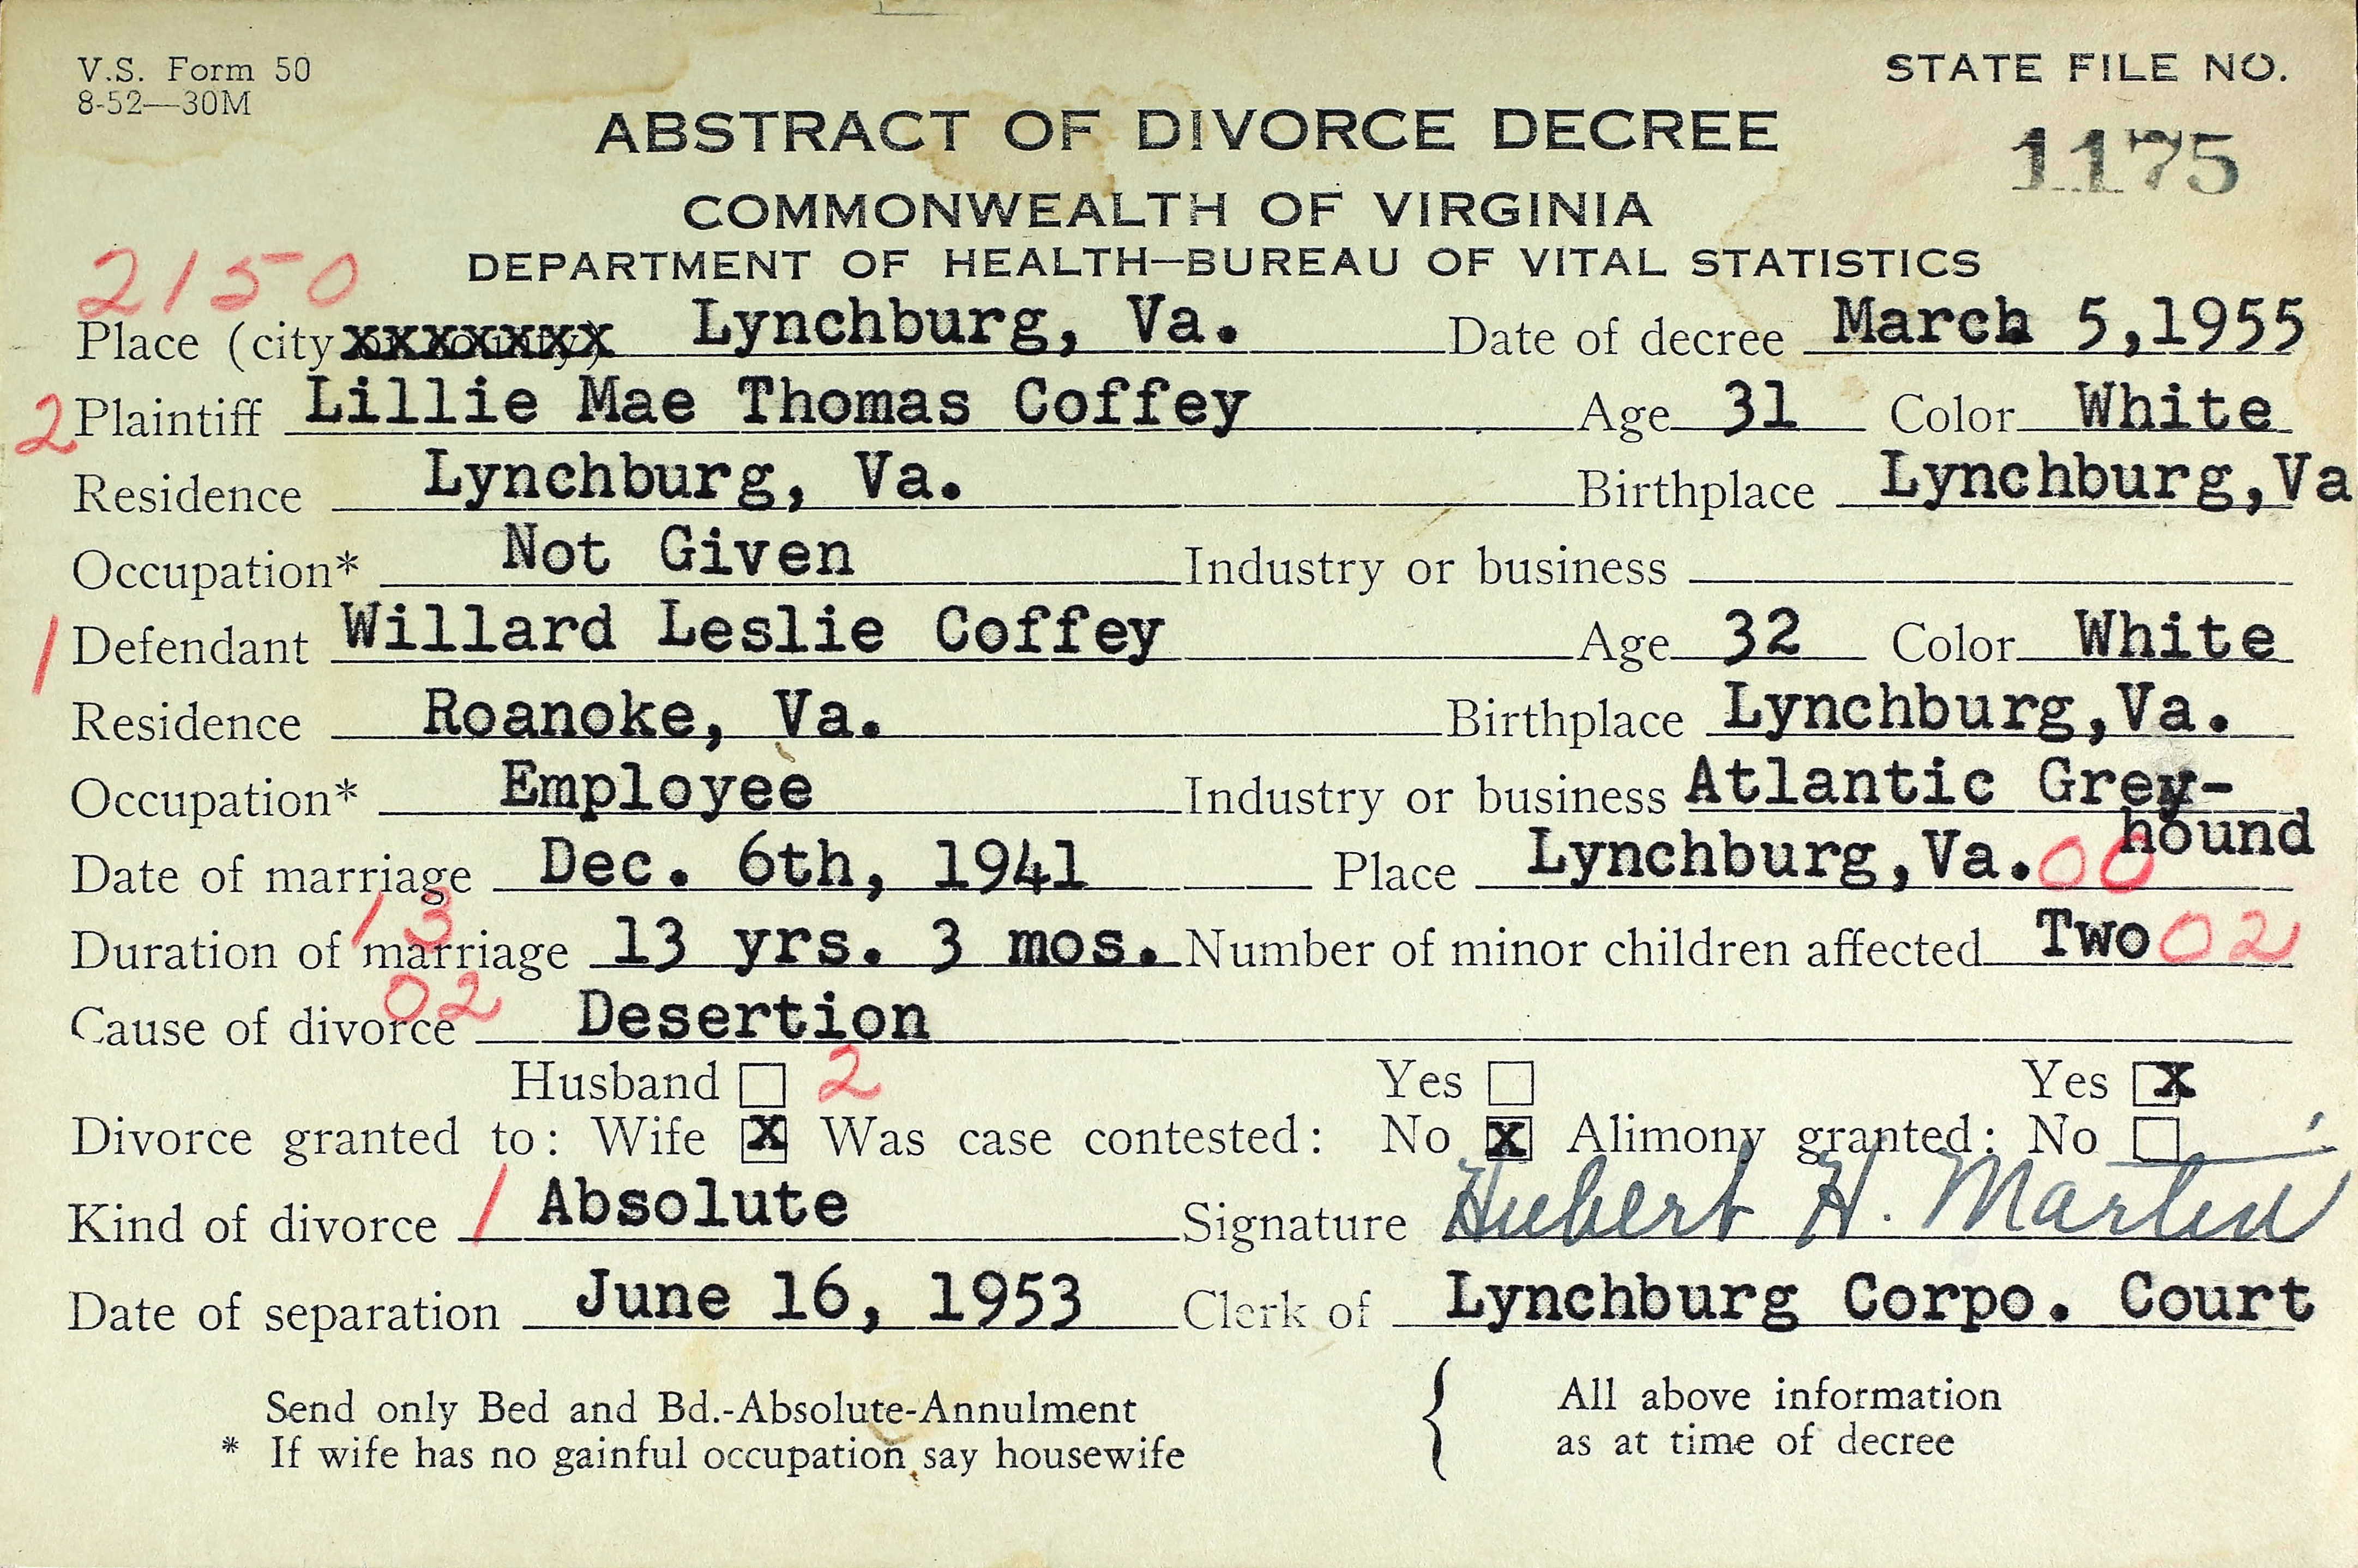 V.S. Form 50
8-52—30M
STATE FILE NO.
1175
ABSTRACT OF DIVORCE DECREE
COMMONWEALTH OF VIRGINIA
DEPARTMENT OF HEALTH—BUREAU OF VITAL STATISTICS
2150
Place (city xxxxxxx Lynchburg, Va. Date of decree March 5,1955
2 Plaintiff Lillie Mae Thomas Coffey Age 31 Color White
Residence Lynchburg, Va. Birthplace Lynchburg,Va
Occupation* Not Given Industry or business
1 Defendant Willard Leslie Coffey Age 32 Color White
Residence Roanoke, Va. Birthplace Lynchburg,Va.
Occupation* Employee Industry or business Atlantic Grey-
hound
Date of marriage Dec. 6th, 1941 Place Lynchburg,Va. 00
13
Duration of marriage 13 yrs. 3 mos. Number of minor children affected Two 02
02
Cause of divorce Desertion
Husband 2 Yes Yes x
Divorce granted to: Wife x Was case contested: No x Alimony granted: No
Kind of divorce 1 Absolute Signature Hubert H. Martin
Date of separation June 16, 1953 Clerk of Lynchburg Corpo. Court
Send only Bed and Bd.-Absolute-Annulment
* If wife has no gainful occupation say housewife
{ All above information
as at time of decree